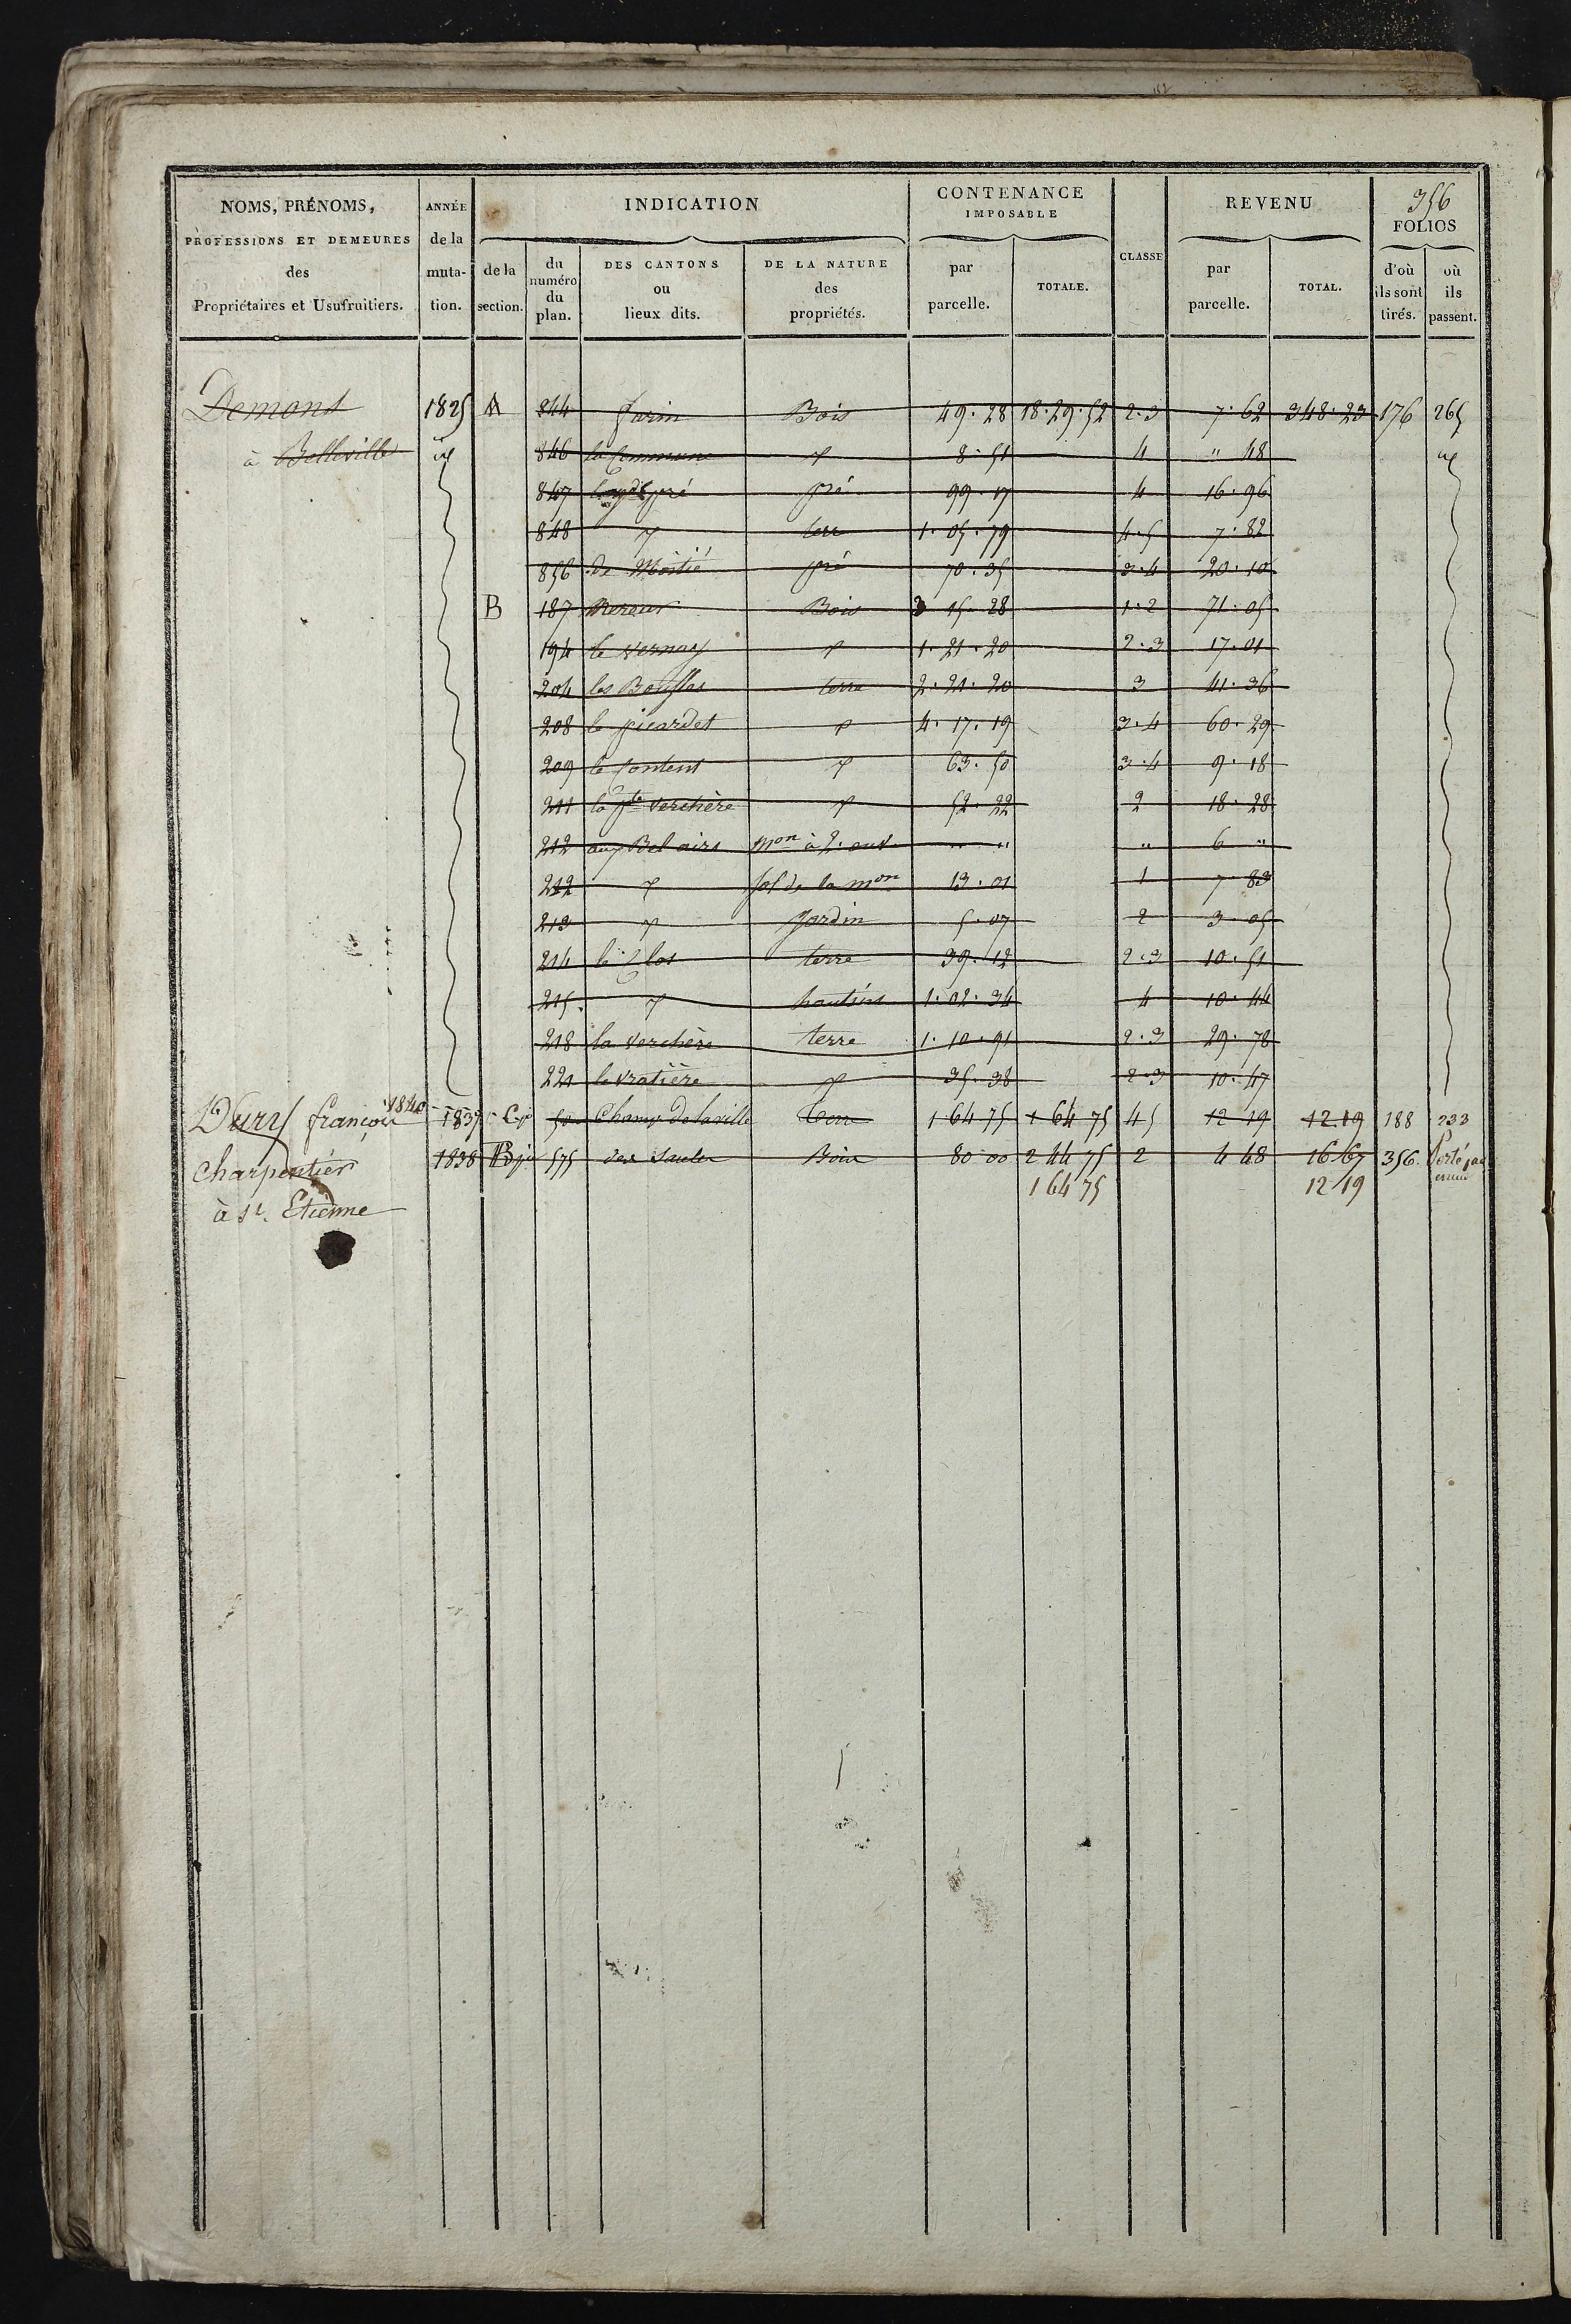 356
NOMS, PRÉNOMS, PROFESSIONS ET DEMEURES des Propriétaires et Usufruitiers.
ANNÉE de la muta-tion.
INDICATION
de la section.
du numéro du plan.
DES CANTONS ou lieux dits.
DE LA NATURE des propriétés.
CONTENANCE IMPOSABLE
par parcelle.
TOTALE.
CLASSE
REVENU
par parcelle.
TOTAL.
FOLIOS
d'où ils sont tirés.
où ils passent.
Demont 1825 A 844 farin Bois 49.28 18.29.52 2.3 7.62 348.23 176 265
à Belleville id 846 la Commune d 8.51 4 " 48 id
847 pré pré 99.17 4 16.96
848 d terre 1.05.79 4.5 7.82
856 de Moitié pré 70.35 3.4 20.10
B 187 Bois 3 15.28 1.2 71.05
194 le Vernay d 1.21.20 2.3 17.01
204 les terre 2.21.20 3 41.36
208 le picardet d 4.17.19 3.4 60.29
209 le d 63.50 3.4 9.18
211 la pte Verchère d 52.22 2 18.28
212 aux Bel airs mon à 2. ouv. " " " 6 "
212 d sol de la mon 13.01 1 7 83
213 d Jardin 5.07 2 3.05
214 le Clos terre 39.12 2.3 10.51
215. d hautins 1.02.34 4 10.44
218 la Verchère terre 1.10.91 2.3 29.78
221 le vratière d 35.38 2.3 10.47
Durry françois 1840 1837 C.p 50 Champ de la ville terre 1 64 75 1 64 75 45 12 19 12.19 188 233
Charpentier 1838 B 575 des Saules Bois 80 00 2 44 75 2 4 48 16 67 356. Porté par erreur
1 64 75 12 19
à St. Etienne